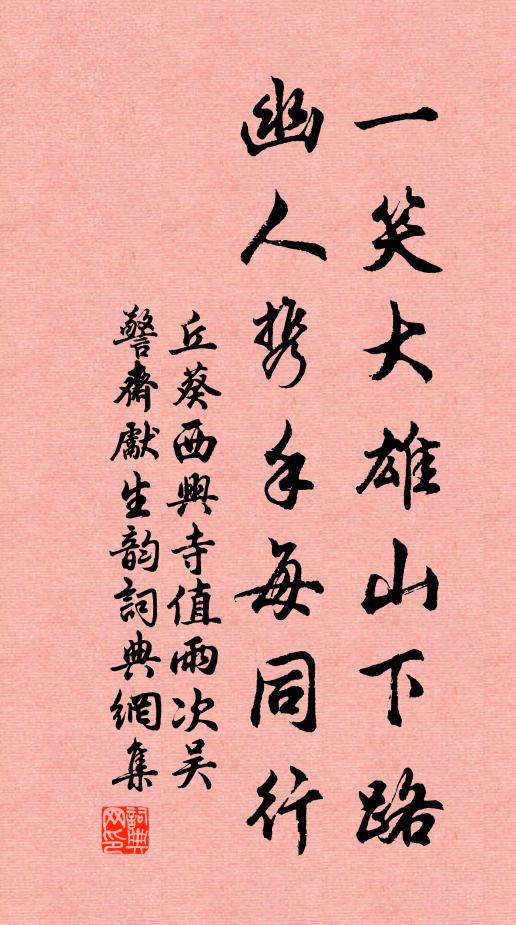 一笑大雄山下路
幽人携手每同行
丘葵西興寺值雨次吴
警齋獻生韵詞典網集
詞典网印